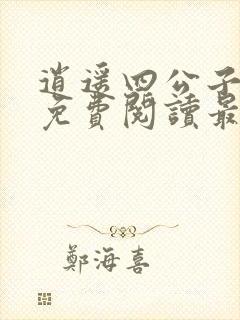 逍遥四公子
免費閱讀最
鄭海喜